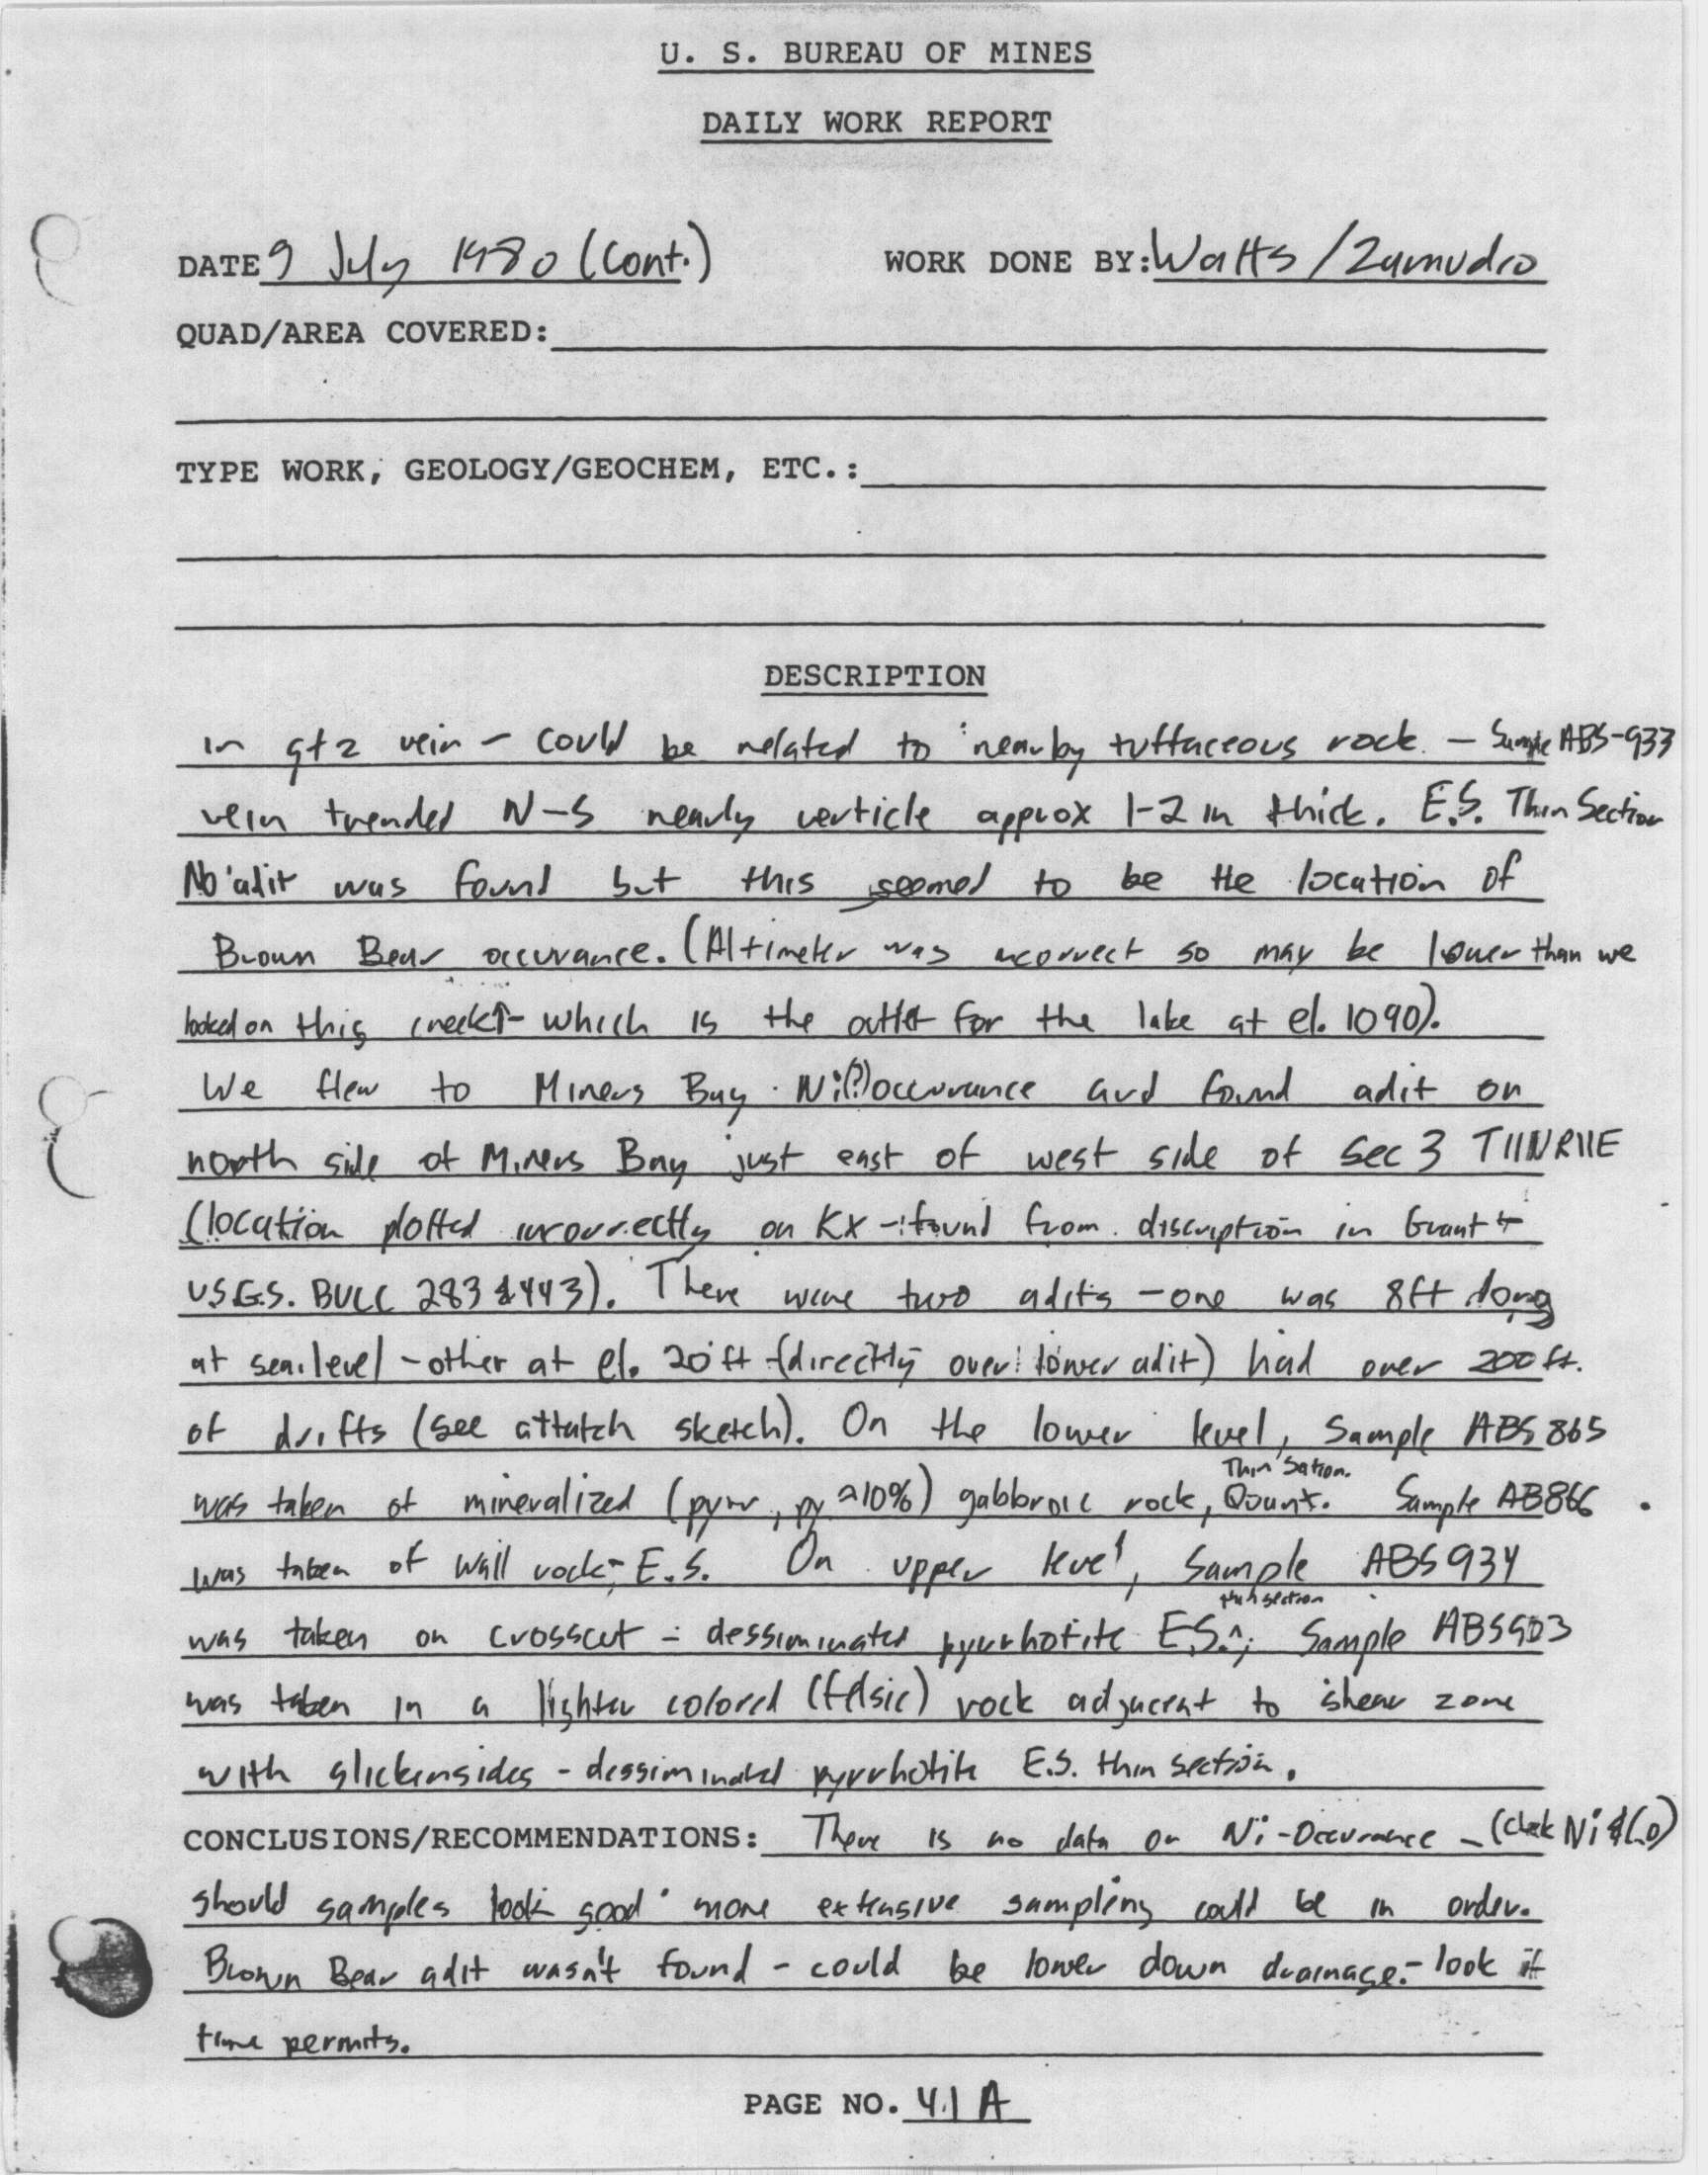 U. S. BUREAU OF MINES
DAILY WORK REPORT
DATE 9 July 1980 (Cont.) WORK DONE BY: Watts / Zamudio
QUAD/AREA COVERED:
TYPE WORK, GEOLOGY/GEOCHEM, ETC.:
DESCRIPTION
in qtz vein - could be related to nearby tuffaceous rock - Sample ABS-933
vein trended N-S nearly verticle approx 1-2 in thick. E.S. Thin Section
No adit was found but this seemed to be the location of
Brown Bear occurance. (Altimeter was incorrect so may be lower than we
looked on this creek - which is the outlet for the lake at el. 1090).
We flew to Miners Bay Ni(?) occurance and found adit on
north side of Miners Bay just east of west side of Sec 3 T11NR11E
(location plotted incorrectly on KX - found from discription in Grant +
U.S.G.S. BULL 283 & 443). There were two adits - one was 8ft long
at sea level - other at el. 20 ft (directly over lower adit) had over 200 ft.
of drifts (see attatch sketch). On the lower level, Sample ABS 865
Thin Section.
was taken of mineralized (pyrr, py ≈10%) gabbroic rock, Quant. Sample AB866
was taken of wall rock - E.S. On upper level, Sample ABS 934
thin section
was taken on crosscut - dessiminated pyrrhotite E.S.^; Sample ABS903
was taken in a lighter colored (felsic) rock adjacent to shear zone
with slickensides - dessiminated pyrrhotite E.S. thin section.
CONCLUSIONS/RECOMMENDATIONS: There is no data on Ni-Occurance - (check Ni & Co)
should samples look good more extensive sampling could be in order.
Brown Bear adit wasn't found - could be lower down drainage - look if
time permits.
PAGE NO. 41A